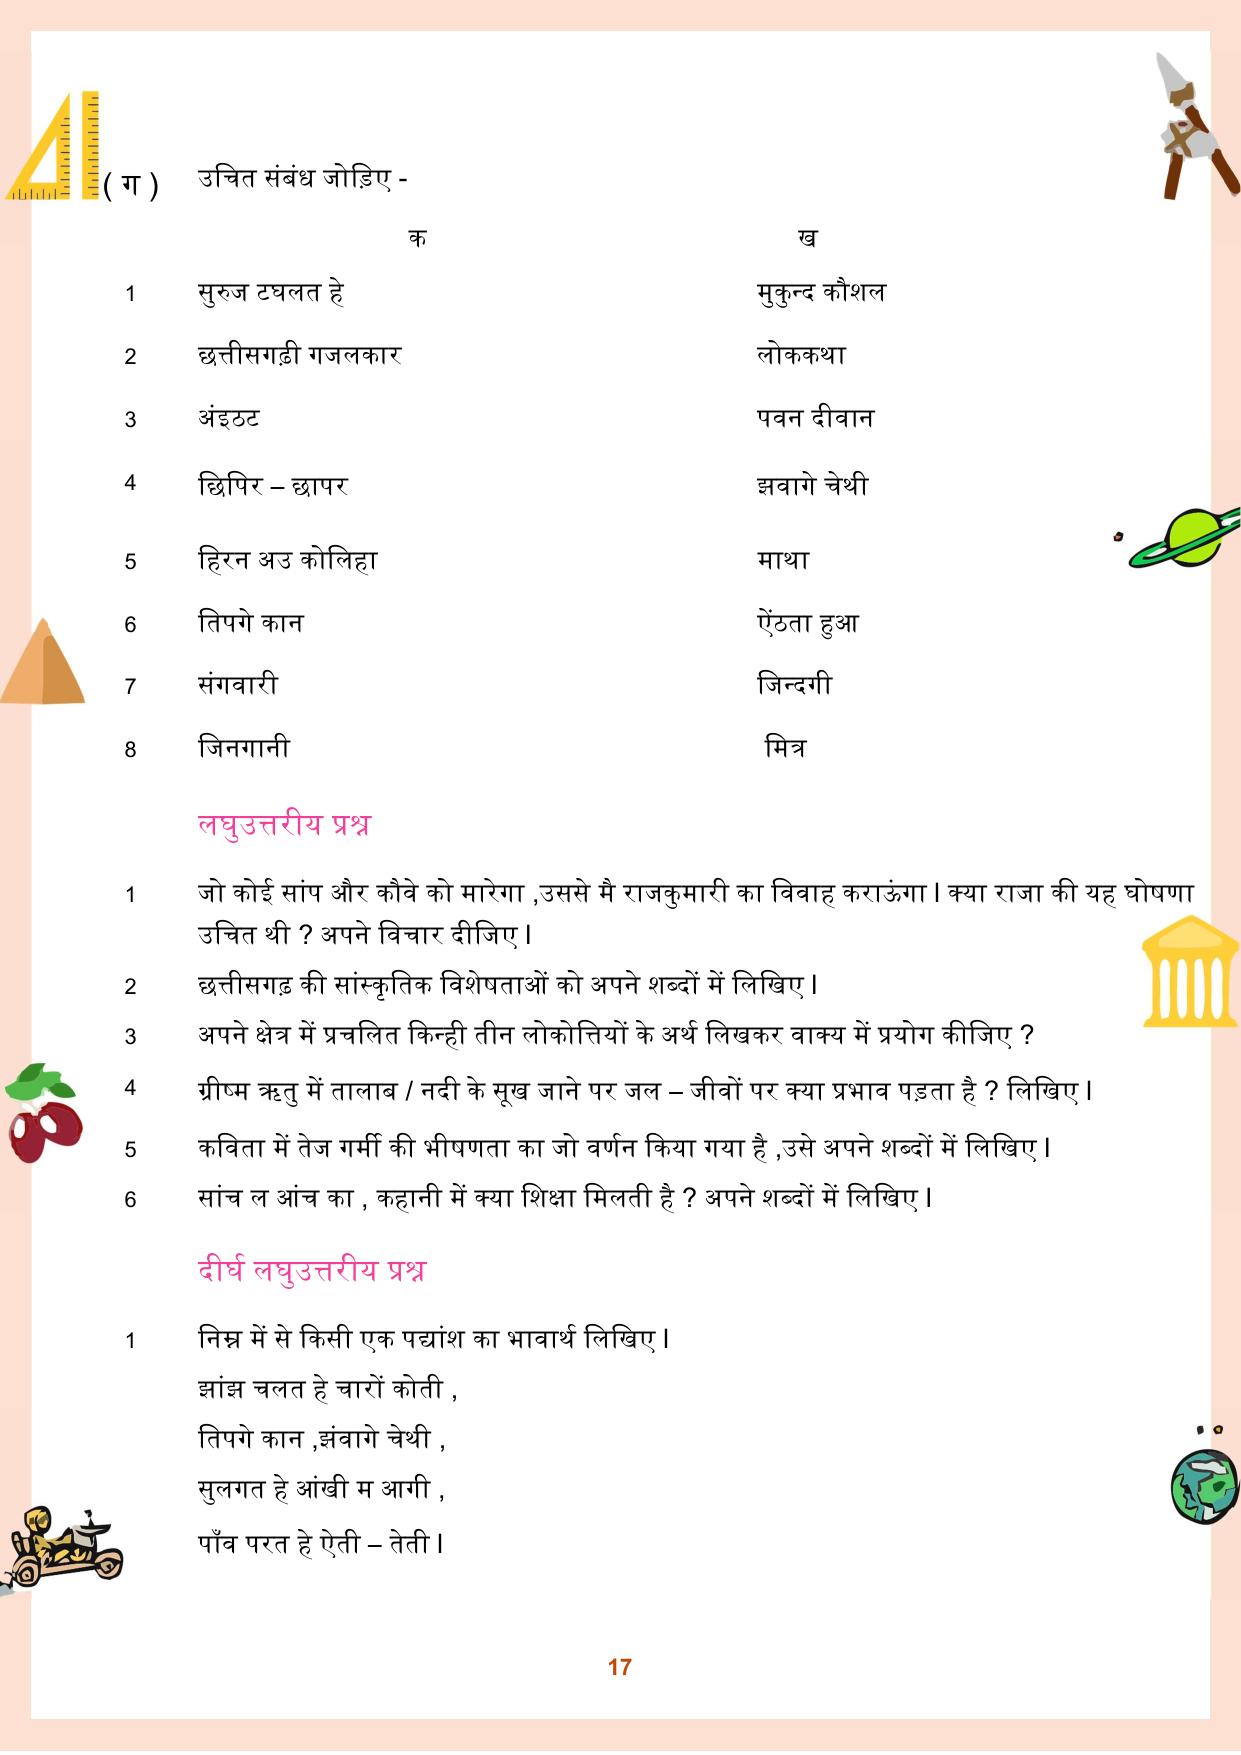 ( ग ) उचित संबंध जोड़िए -
क ख
1 सुरुज टघलत हे मुकुन्द कौशल
2 छत्तीसगढ़ी गजलकार लोककथा
3 अंइठट पवन दीवान
4 छिपिर – छापर झवागे चेथी
5 हिरन अउ कोलिहा माथा
6 तिपगे कान ऐंठता हुआ
7 संगवारी जिन्दगी
8 जिनगानी मित्र
लघुउत्तरीय प्रश्न
1 जो कोई सांप और कौवे को मारेगा ,उससे मै राजकुमारी का विवाह कराऊंगा l क्या राजा की यह घोषणा
उचित थी ? अपने विचार दीजिए l
2 छत्तीसगढ़ की सांस्कृतिक विशेषताओं को अपने शब्दों में लिखिए l
3 अपने क्षेत्र में प्रचलित किन्ही तीन लोकोत्तियों के अर्थ लिखकर वाक्य में प्रयोग कीजिए ?
4 ग्रीष्म ऋतु में तालाब / नदी के सूख जाने पर जल – जीवों पर क्या प्रभाव पड़ता है ? लिखिए l
5 कविता में तेज गर्मी की भीषणता का जो वर्णन किया गया है ,उसे अपने शब्दों में लिखिए l
6 सांच ल आंच का , कहानी में क्या शिक्षा मिलती है ? अपने शब्दों में लिखिए l
दीर्घ लघुउत्तरीय प्रश्न
1 निम्न में से किसी एक पद्यांश का भावार्थ लिखिए l
झांझ चलत हे चारों कोती ,
तिपगे कान ,झंवागे चेथी ,
सुलगत हे आंखी म आगी ,
पाँव परत हे ऐती – तेती l
17